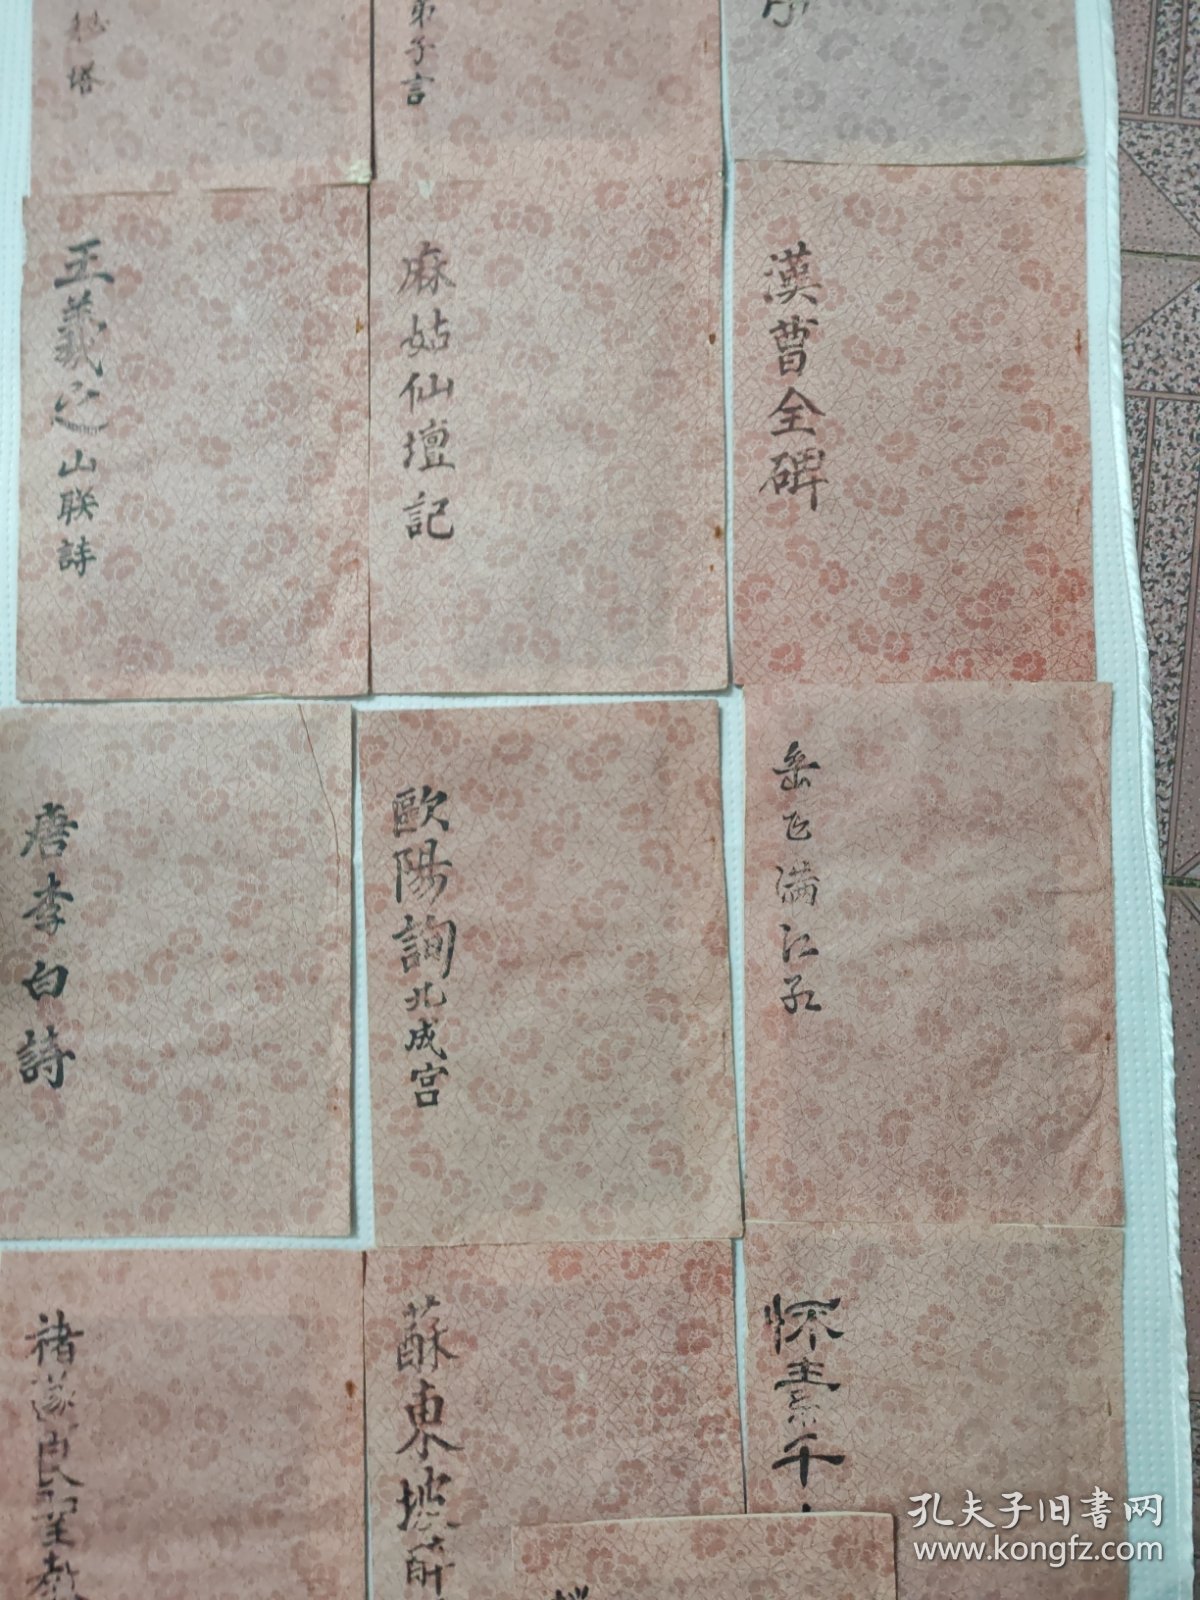 塔
弟子言
王羲之山联詩
麻姑仙壇記
漢曹全碑
唐李白詩
歐陽詢九成宫
岳飞满江红
褚遂良聖教
蘇東坡醉
怀素千
孔夫子旧书网
www.kongfz.com